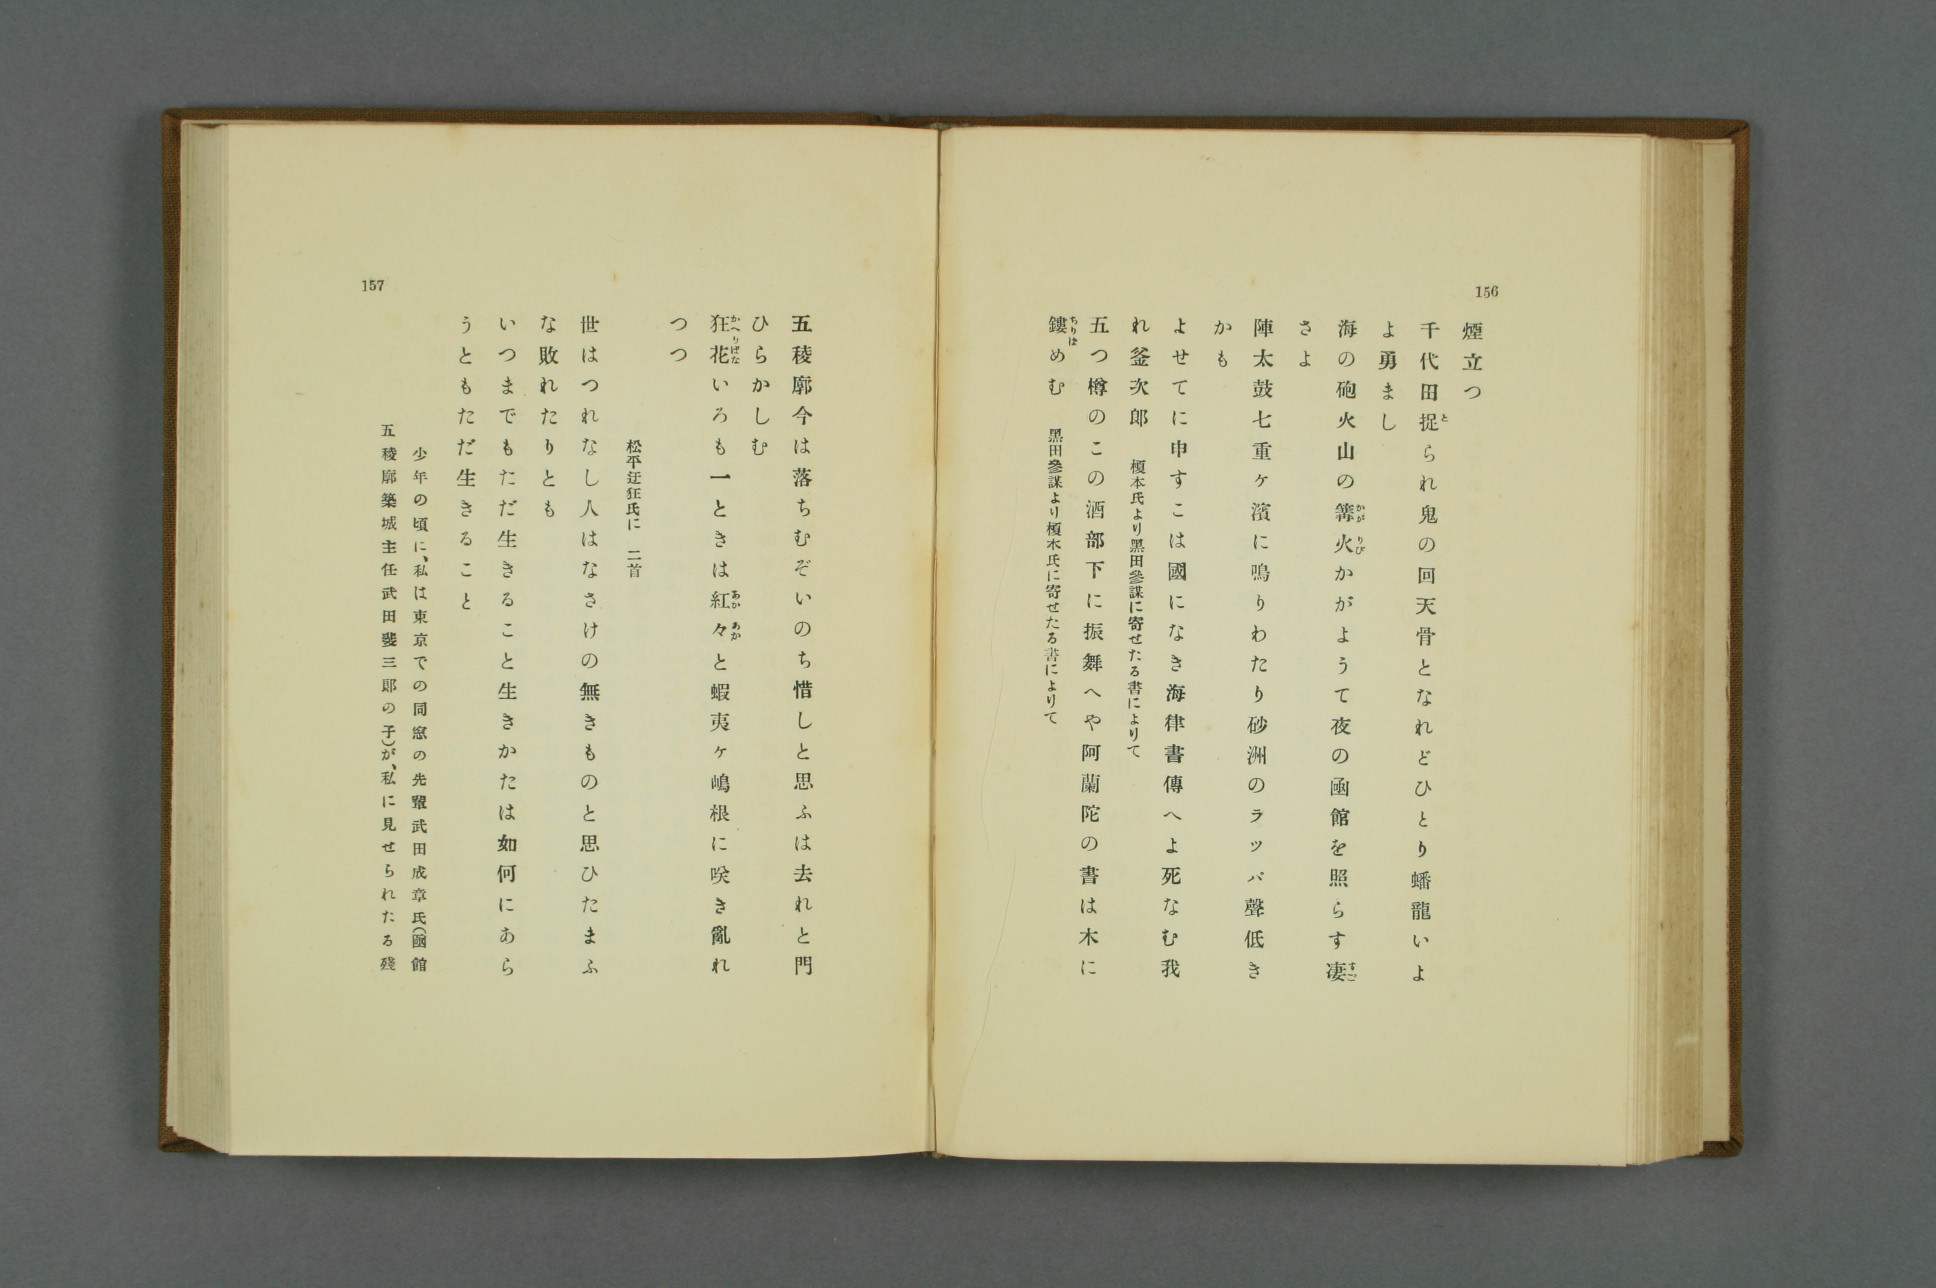 156
煙立つ
千代田捉られ鬼の回天骨となれどひとり蟠龍いよ
よ勇まし
海の砲火山の篝火かがようて夜の凾館を照らす凄
さよ
陣太鼓七重ヶ濱に鳴りわたり砂洲のラッパ聲低き
かも
よせてに申すこは國になき海律書傳へよ死なむ我
れ釜次郎　榎本氏より黑田參謀に寄せたる書によりて
五つ樽のこの酒部下に振舞へや阿蘭陀の書は木に
鏤めむ　黑田參謀より榎本氏に寄せたる書によりて
157
五稜廓今は落ちむぞいのち惜しと思ふは去れと門
ひらかしむ
狂花いろも一ときは紅々と蝦夷ヶ嶋根に咲き亂れ
つつ
松平迂狂氏に　二首
世はつれなし人はなさけの無きものと思ひたまふ
な敗れたりとも
いつまでもただ生きること生きかたは如何にあら
うともただ生きること
少年の頃に、私は東京での同窓の先輩武田成章氏(凾館
五稜廓築城主任武田斐三郞の子)が、私に見せられたる殘